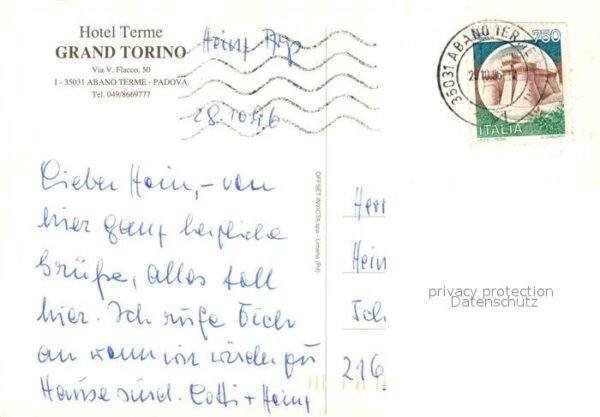 Hotel Terme
GRAND TORINO
Via V. Flacco, 50
I - 35031 ABANO TERME - PADOVA
Tel. 049/8669777
Heinz
28.10.96
Lieber Hein, - von
hier ganz herzliche
Grüße, alles toll
hier. Ich rufe Dich
an wann wir wieder zu
Hause sind. Lotti + Heinz
OFFSET INVICTA spa - Limena (Pd)
35031 ABANO TERME
750
ITALIA
Herr
Hein
privacy protection
Datenschutz
216